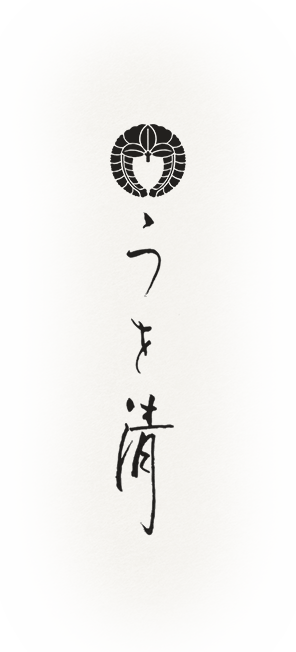 うを清